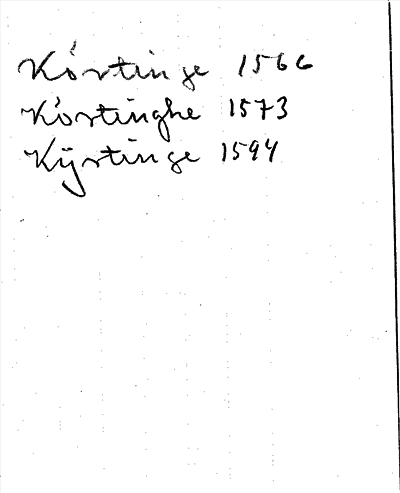 Körtinge 1566
Körtinghe 1573
Kÿrtinge 1594